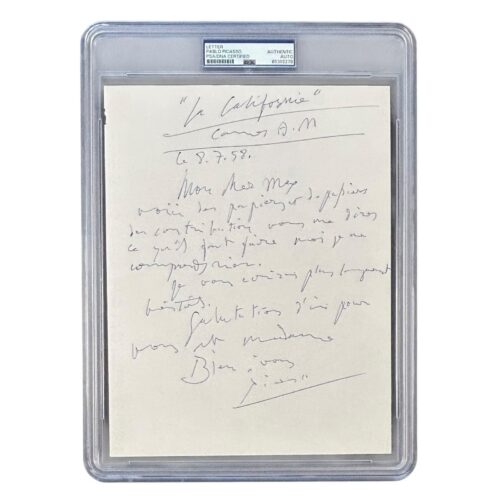 LETTER
PABLO PICASSO
PSA/DNA CERTIFIED
AUTHENTIC
AUTO
"La Californie"
Cannes A.M
le 8.7.58.
Mon cher Max
voici des papiers et des papiers
des contributions vous me direz
ce qu'il faut faire moi je ne
comprends rien.
Je vous écrirai plus longuement
bientôt.
Salutations d'ici pour
vous et madame
Bien à vous
Picasso